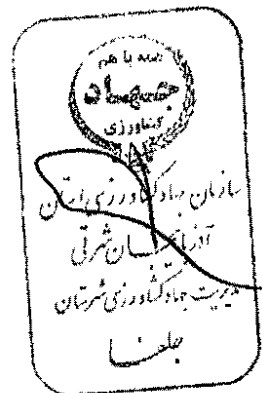 همه با هم
جهاد
کشاورزی
سازمان جهاد کشاورزی استان
آذربایجان شرقی
مدیریت جهاد کشاورزی شهرستان
جلفا